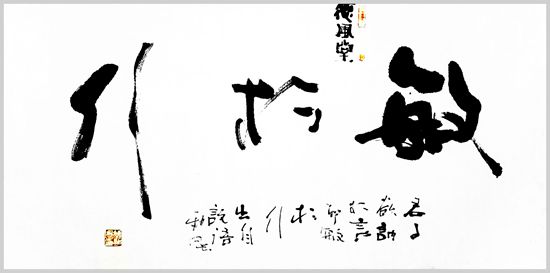 德風堂
敏於行
君子
欲訥
於言
而敏
於
行
出自
論語